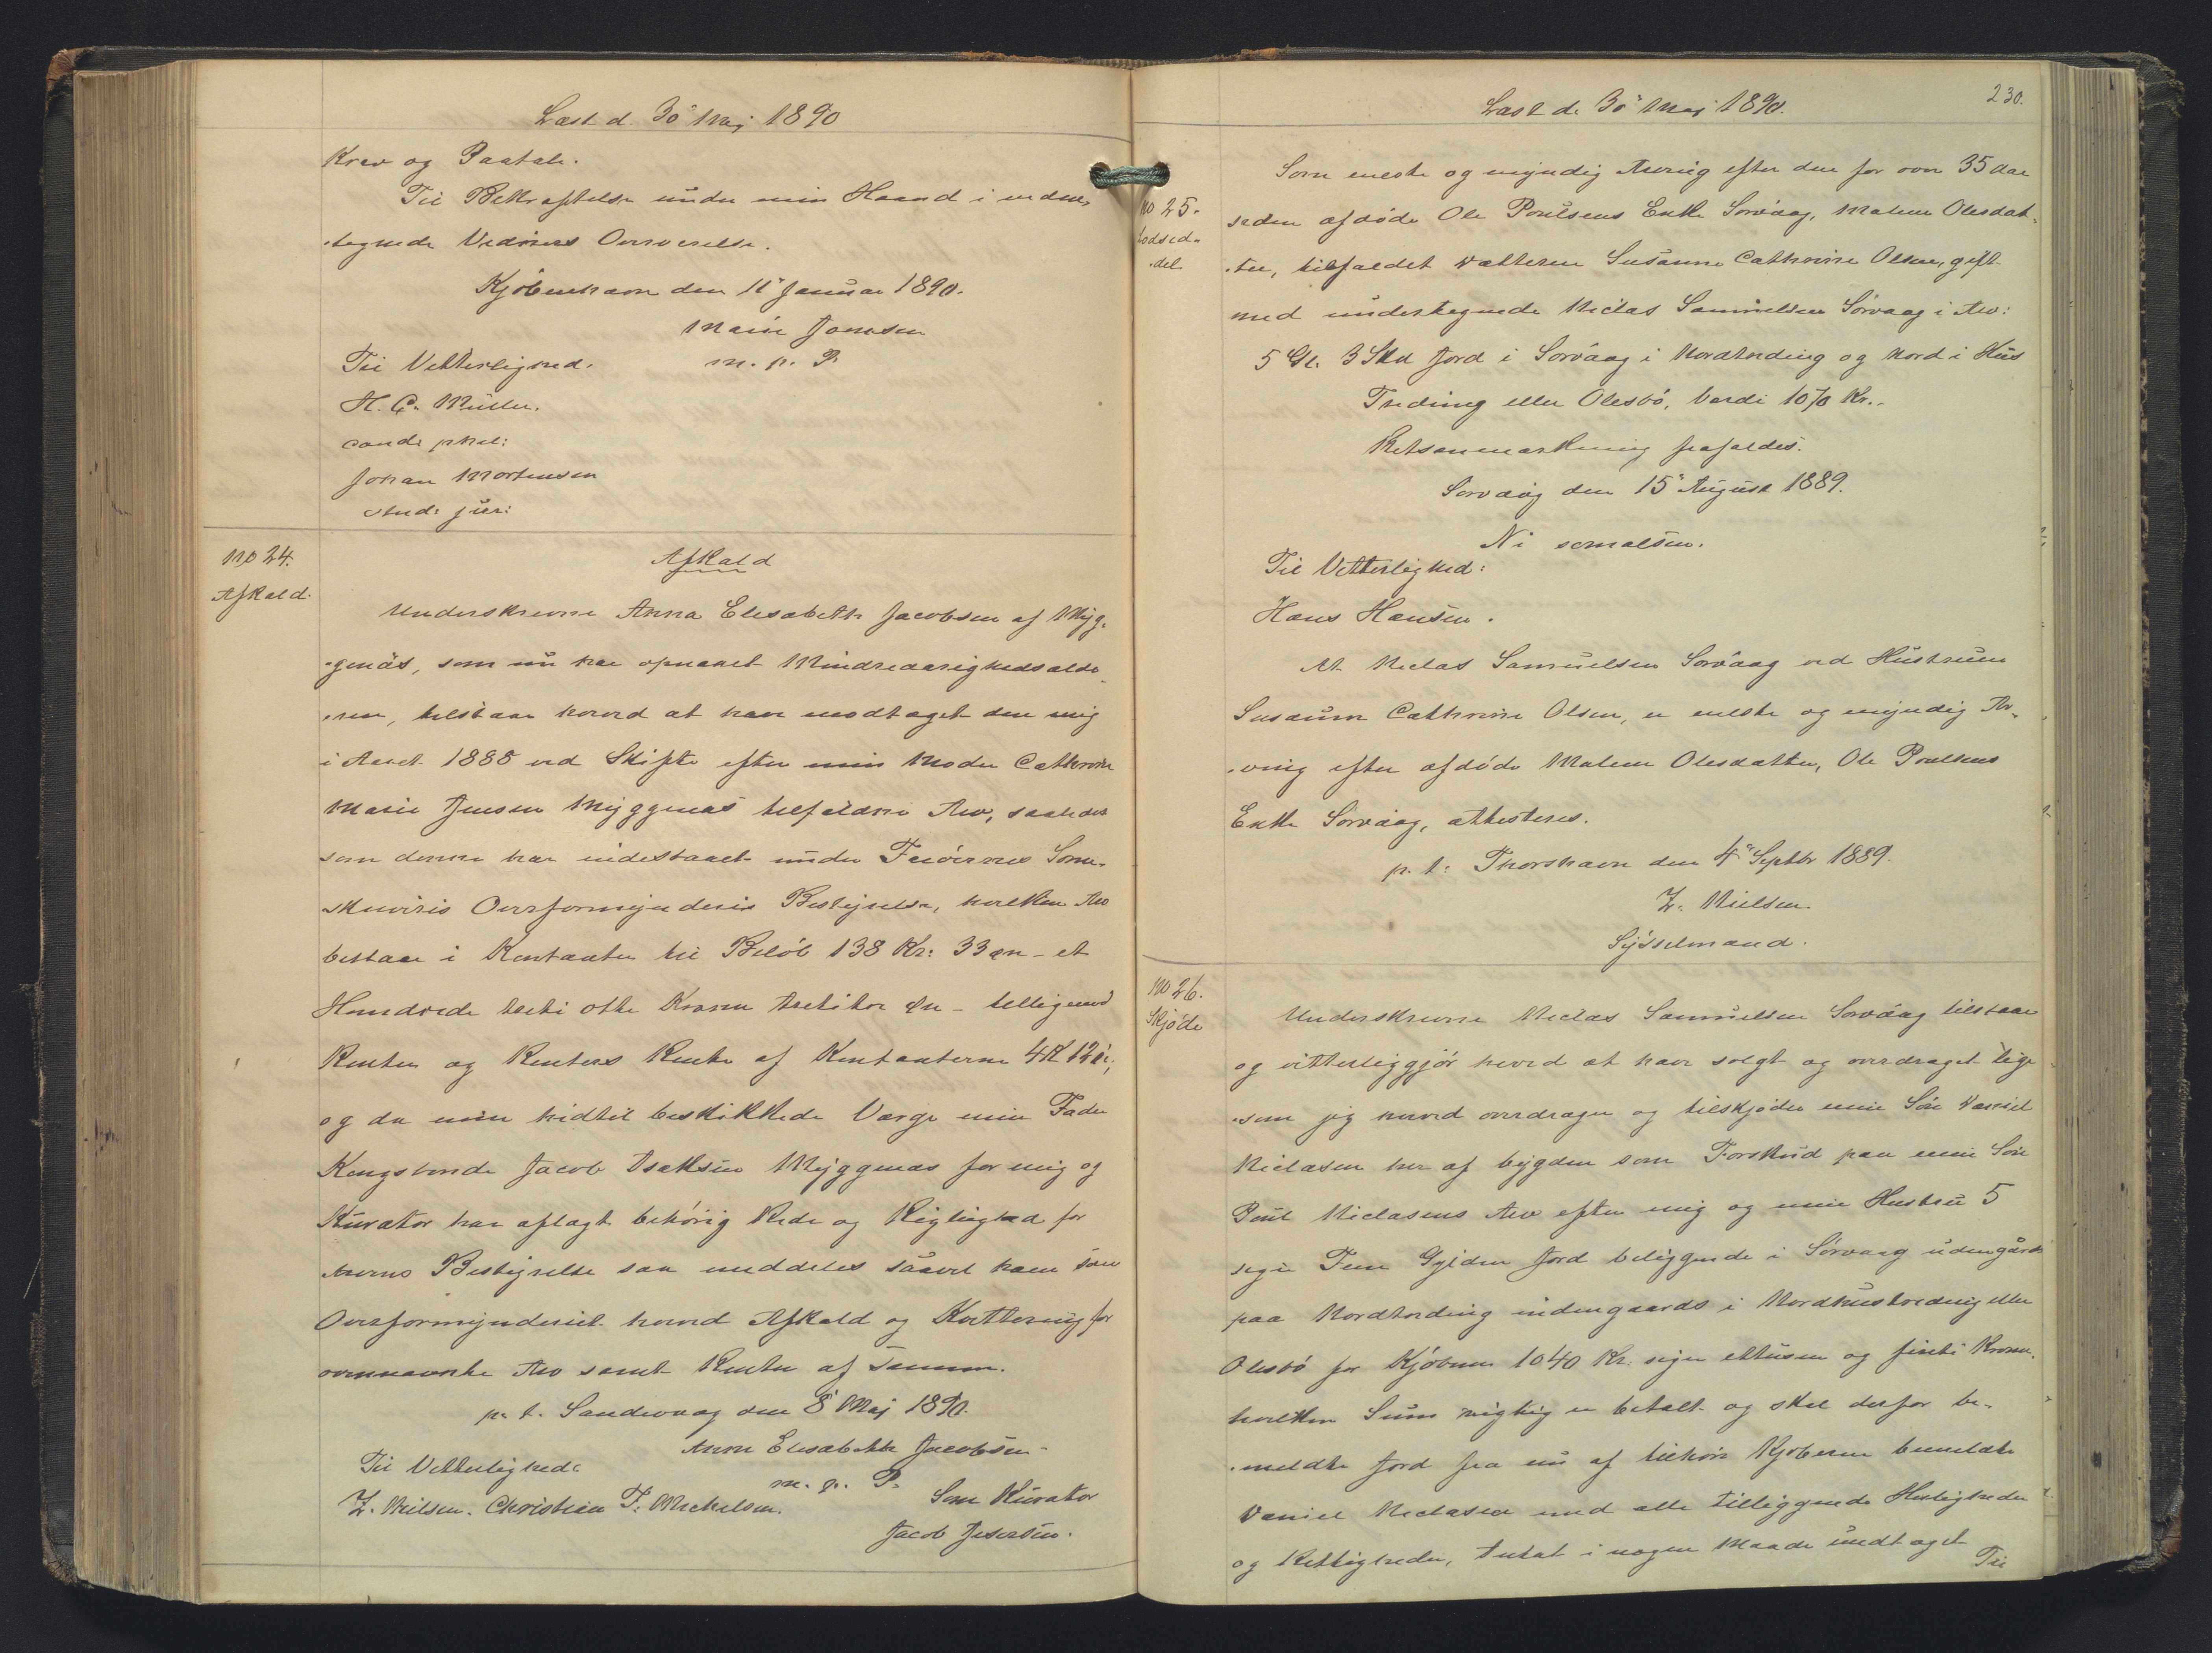 Læst d. 30' Maj 1890
Krav og Paatale.
Til Bekræftelse under min Haand i under-
tegnede Vidners Overværelse.
Kjöbenhavn den 11' Januar 1890.
Marie Jonsen
Til Vitterlighed. m. p. P.
H. C. Müller.
cand: phil:
Johan Mortensen
stud: jur:
No 24.
Afkald.
Afkald
Underskrevne Anna Elesabeth Jacobsen af Myg-
genäs, som nu har opnaaet Mindreaarighedsalde-
ren, tilstaar herved at have modtaget den mig
i Aaret 1885 ved Skifte efter min Moder Cathrine
Marie Jensen Myggenäs tilfaldne Arv, saaledes
som denne har indestaaet under Færöernes Soren-
skriveris Overformynderis Bestyrelse, hvilken Arv
bestaar i Kontanter til Belöb 138 Kr: 33 øre - et
Hundrede treti otte Kroner tretitre Øre - tilligemed
Renter og Renters Rente af Kontanterne 4 K 12 ö;
og da min hidtil beskikkede Værge min Fader
Kongsbonde Jacob Isaksen Myggenæs for mig og
Kurator har aflagt behörig Rede og Rigtighed for
Arvens Bestyrelse saa meddeles saavel ham som
Overformynderiet herved Afkald og Kvittering for
ovennævnte Arv samt Renter af samme.
p. t. Sandevaag den 8' Maj 1890.
Anna Elesabeth Jacobsen
Til Vitterlighed: m. p. P.
Z. Nielsen. Christian T. Mickelsen. Som Kurator
Jacob
230.
Læst d. 30' Maj 1890.
No 25.
Lodsed-
del.
Som eneste og myndig Arving efter den for over 35 Aar
siden afdöde Ole Poulsens Enke Sorváag, Malene Olesdat-
ter, tilfaldet Datteren Susanne Cathrine Olsen, gift
med undertegnede Niclas Samuelsen Sörvaag i Arv:
5 Gl. 3 Skd Jord i Sorváag i Nordtreding og Nord i Hus
Treding eller Olesbö, Værdi 1070 Kr.
Retsanmærkning frafaldes.
Sorváag den 15' August 1889.
Ni somalsen.
Til Vitterlighed:
Hans Hansen.
At Niclas Samuelsen Sorváag ved Hustruen
Susanne Cathrine Olsen, er eneste og myndig Ar-
ving efter afdöde Malene Olesdatter, Ole Poulsens
Enke Sorváag, attesteres.
p. t: Thorshavn den 4' Septbr 1889.
Z. Nielsen.
Sysselmand.
No 26.
Skjöde
Underskrevne Niclas Samuelsen Sorváag tilstaar
og vitterliggjör herved at have solgt og overdraget lige-
som jeg herved overdrager og tilskjöder min Sön Daniel
Niclasen her af bygden som Forskud paa min Sön
Poul Niclasens Arv efter mig og min Hustru 5
siger Fem Gylden Jord beliggende i Sörvaag udengårds
paa Nordtreding indengaards i Nordhustreding eller
Olesbö for Kjöbesum 1040 Kr. siger ettusen og fireti Kroner,
hvilken Sum rigtig er betalt og skal derfor be-
meldte Jord fra nu af tilhöre Kjöberen bemeldte
Daniel Niclasen med alle tilliggende Herligheder
og Rettigheder, Intet i nogen Maade undtaget
Til